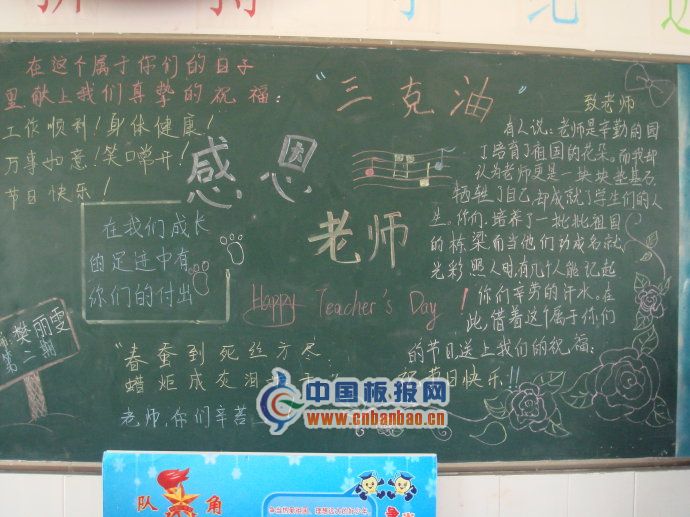 在这个属于你们的日子
里献上我们真挚的祝福：
工作顺利！身体健康！
万事如意！笑口常开！
节日快乐！
感恩
在我们成长
的足迹中有
你们的付出
樊雨雯
第二期
"三克油"
老师
Happy Teacher's Day！
"春蚕到死丝方尽
蜡炬成灰泪
老师，你们辛苦
致老师
有人说：老师是辛勤的园
丁培育了祖国的花朵。而我却
认为老师更是一块块垫基石，
牺牲了自己，却成就了学生们的人
生。你们，培养了一批批祖国
的栋梁而当他们功成名就，
光彩照人时有几个人能记起
你们辛劳的汗水。在
此，借着这个属于你们
的节日送上我们的祝福：
节日快乐!!
中国板报网
www.cnbanbao.cn
队
角